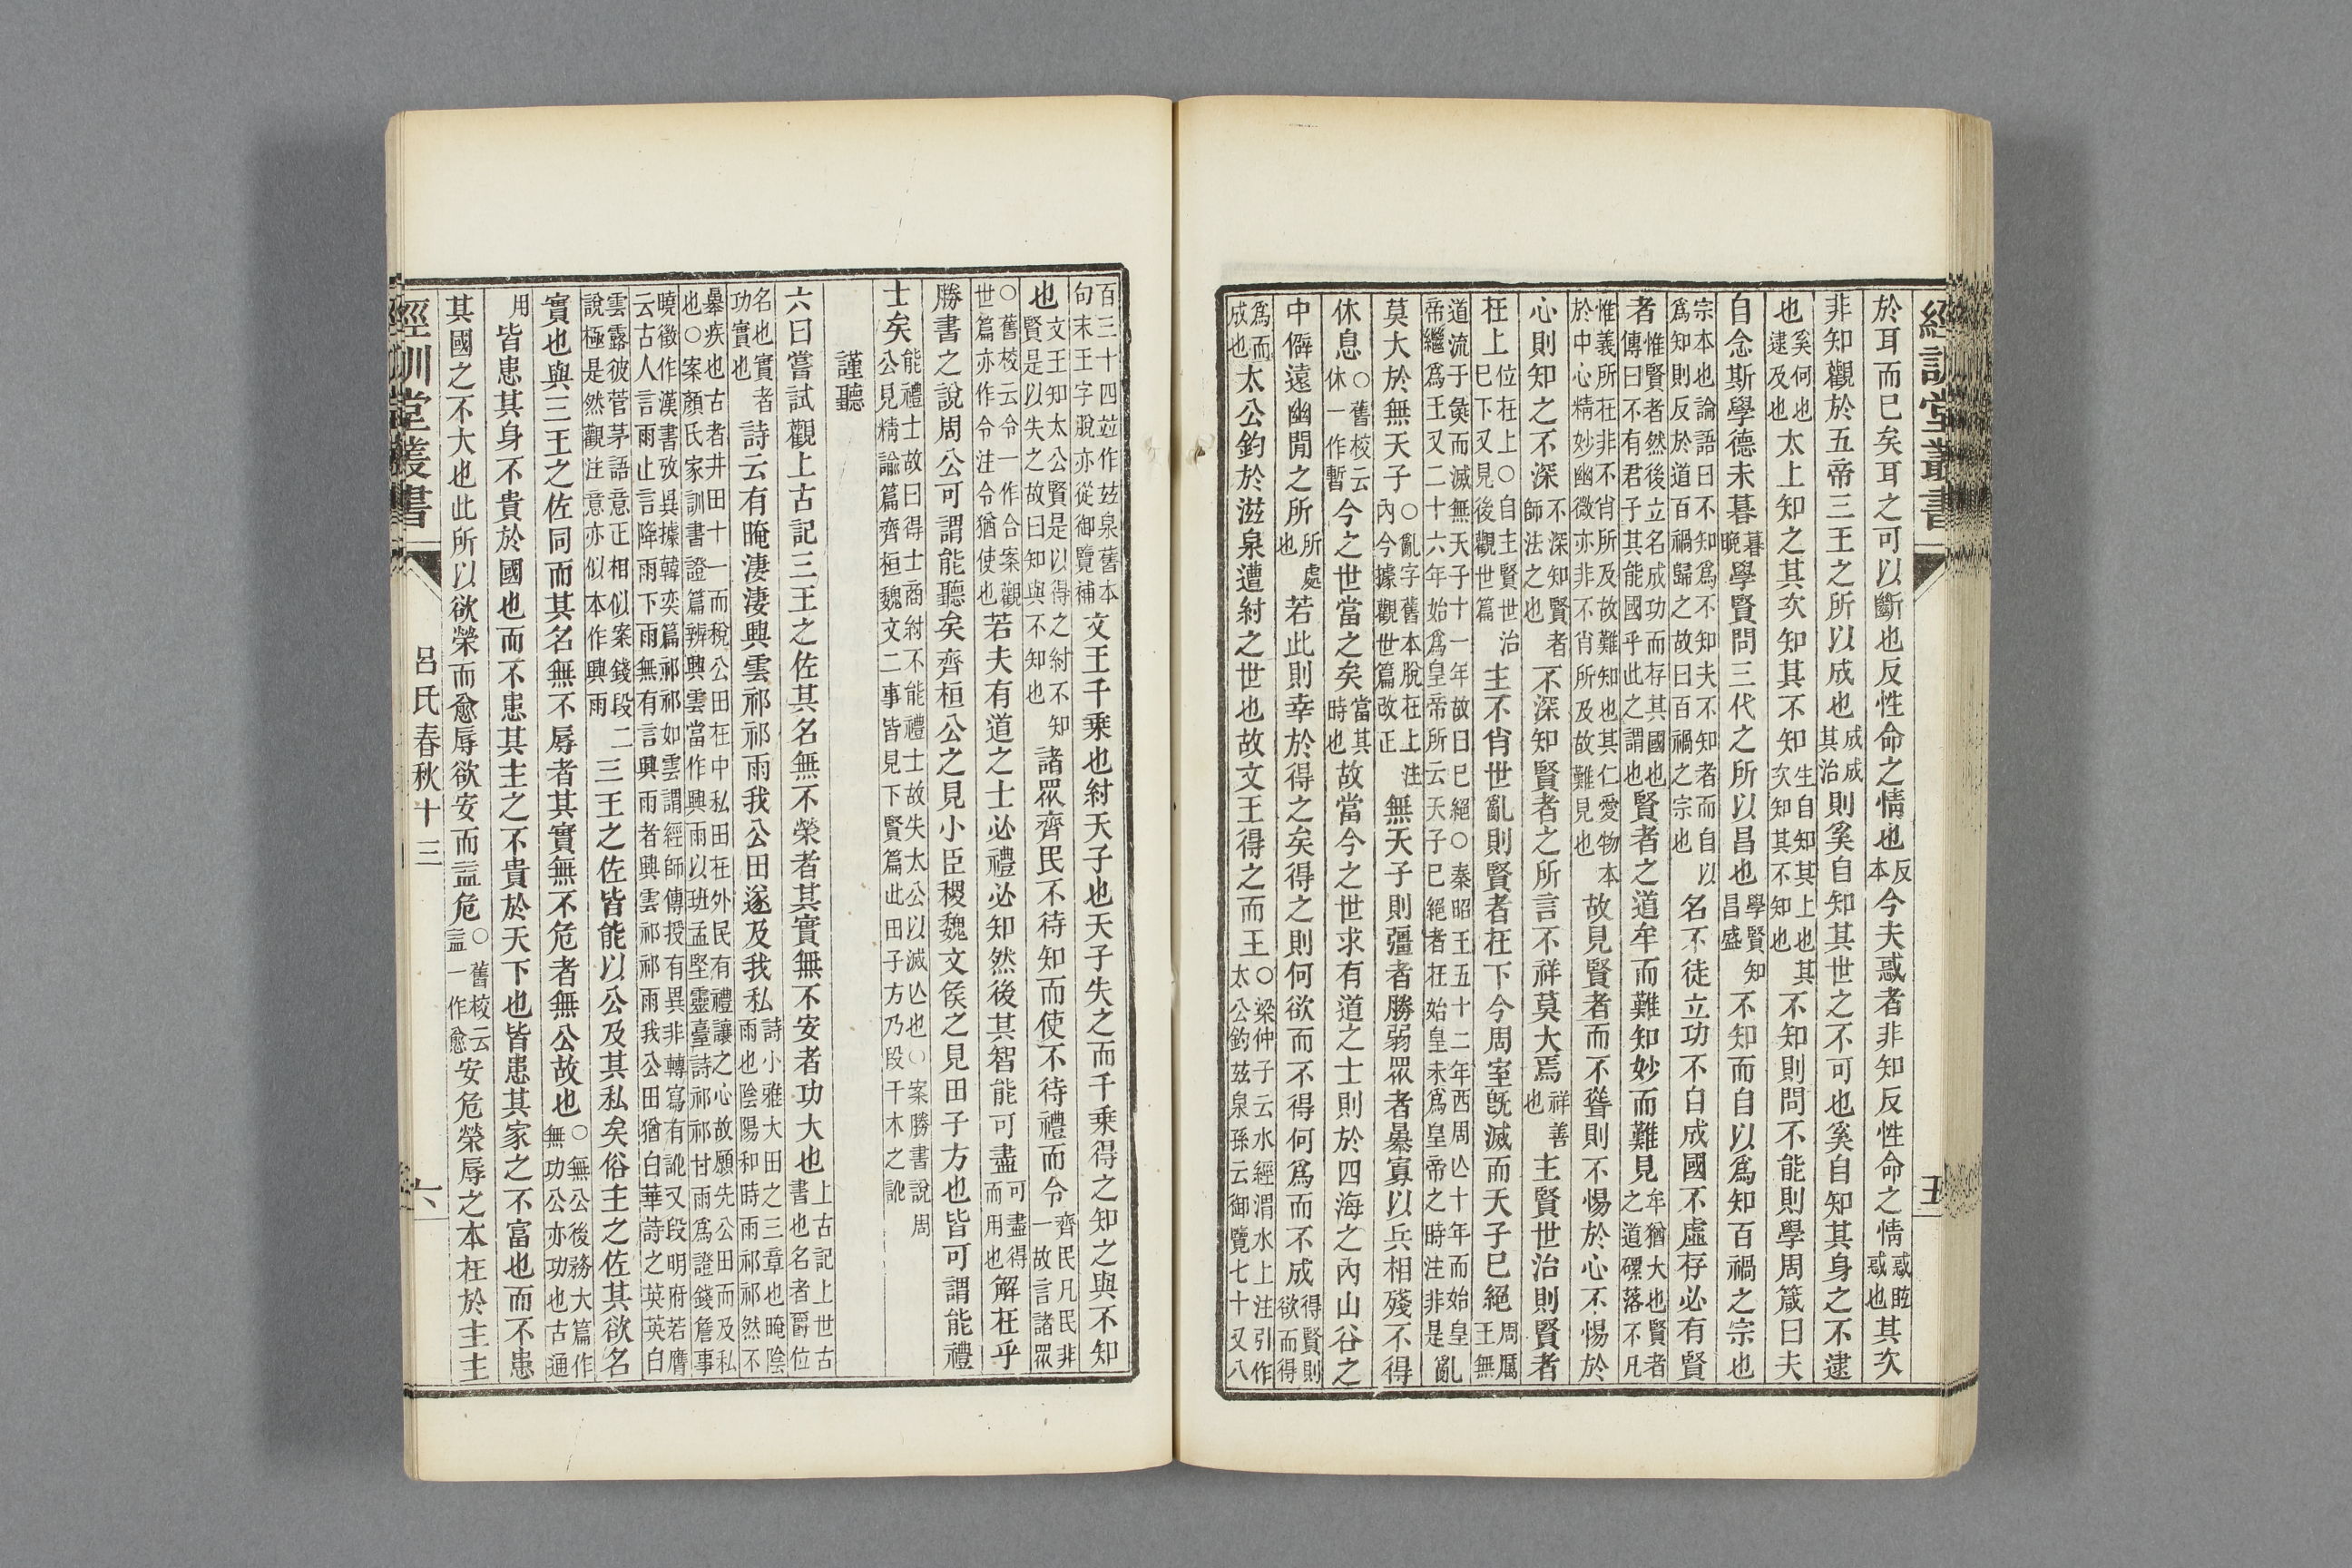 經訓堂叢書 五
於耳而已矣耳之可以斷也反性命之情也反本今夫惑者非知反性命之情惑眩惑也其次
非知觀於五帝三王之所以成也成成其治則奚自知其世之不可也奚自知其身之不逮
也奚何也逮及也太上知之其次知其不知生自知其上也其次知其不知也不知則問不能則學周箴曰夫
自念斯學德未暮暮晚學賢問三代之所以昌也學賢知昌盛不知而自以爲知百禍之宗也
宗本也論語曰不知爲不知夫不知者而自以爲知則反於道百禍歸之故曰百禍之宗也名不徒立功不自成國不虛存必有賢
者惟賢者然後立名成功而存其國也傳曰不有君子其能國乎此之謂也賢者之道牟而難知妙而難見牟猶大也賢者之道磥落不凡
惟義所在非不肖所及故難知也其仁愛物本於中心精妙幽微亦非不肖所及故難見也故見賢者而不聳則不惕於心不惕於
心則知之不深不深知賢者師法之也不深知賢者之所言不祥莫大焉祥善也主賢世治則賢者
在上位在上○自主賢世治已下又見後觀世篇主不肖世亂則賢者在下今周室旣滅而天子已絕周厲王無
道流于彘而滅無天子十一年故曰已絕○秦昭王五十二年西周亾十年而始皇帝繼爲王又二十六年始爲皇帝所云天子已絕者在始皇未爲皇帝之時注非是亂
莫大於無天子○亂字舊本脫在上注內今據觀世篇改正無天子則彊者勝弱眾者暴寡以兵相殘不得
休息○舊校云休一作暫今之世當之矣當其時也故當今之世求有道之士則於四海之內山谷之
中僻遠幽閒之所所處也若此則幸於得之矣得之則何欲而不得何爲而不成得賢則欲而得
爲而成也太公釣於滋泉遭紂之世也故文王得之而王○梁仲子云水經渭水上注引作太公釣茲泉孫云御覽七十又八
百三十四竝作茲泉舊本句末王字脫亦從御覽補文王千乘也紂天子也天子失之而千乘得之知之與不知
也文王知太公賢是以得之紂不知賢是以失之故曰知與不知也諸眾齊民不待知而使不待禮而令齊民凡民非一故言諸眾
○舊校云令一作合案觀世篇亦作令注令猶使也若夫有道之士必禮必知然後其智能可盡可盡得而用也解在乎
勝書之說周公可謂能聽矣齊桓公之見小臣稷魏文侯之見田子方也皆可謂能禮
士矣能禮士故曰得士商紂不能禮士故失太公以滅亾也○案勝書說周公見精諭篇齊桓魏文二事皆見下賢篇此田子方乃段干木之訛
謹聽
六曰嘗試觀上古記三王之佐其名無不榮者其實無不安者功大也上古記上世古書也名者爵位
名也實者功實也詩云有晻淒淒興雲祁祁雨我公田遂及我私詩小雅大田之三章也晻陰雨也陰陽和時雨祁祁然不
暴疾也古者井田十一而稅公田在中私田在外民有禮讓之心故願先公田而及私也○案顏氏家訓書證篇辨興雲當作興雨以班孟堅靈臺詩祁祁甘雨爲證錢詹事
曉徵作漢書攷異據韓奕篇祁祁如雲謂經師傳授有異非轉寫有訛又段明府若膺云古人言雨止言降雨下雨無有言興雨者興雲祁祁雨我公田猶白華詩之英英白
雲露彼菅茅語意正相似案錢段說極是然觀注意亦似本作興雨二三王之佐皆能以公及其私矣俗主之佐其欲名
實也與三王之佐同而其名無不辱者其實無不危者無公故也○無公後務大篇作無功公亦功也古通
用皆患其身不貴於國也而不患其主之不貴於天下也皆患其家之不富也而不患
其國之不大也此所以欲榮而愈辱欲安而益危○舊校云益一作愈安危榮辱之本在於主主
經訓堂叢書 呂氏春秋十三 六